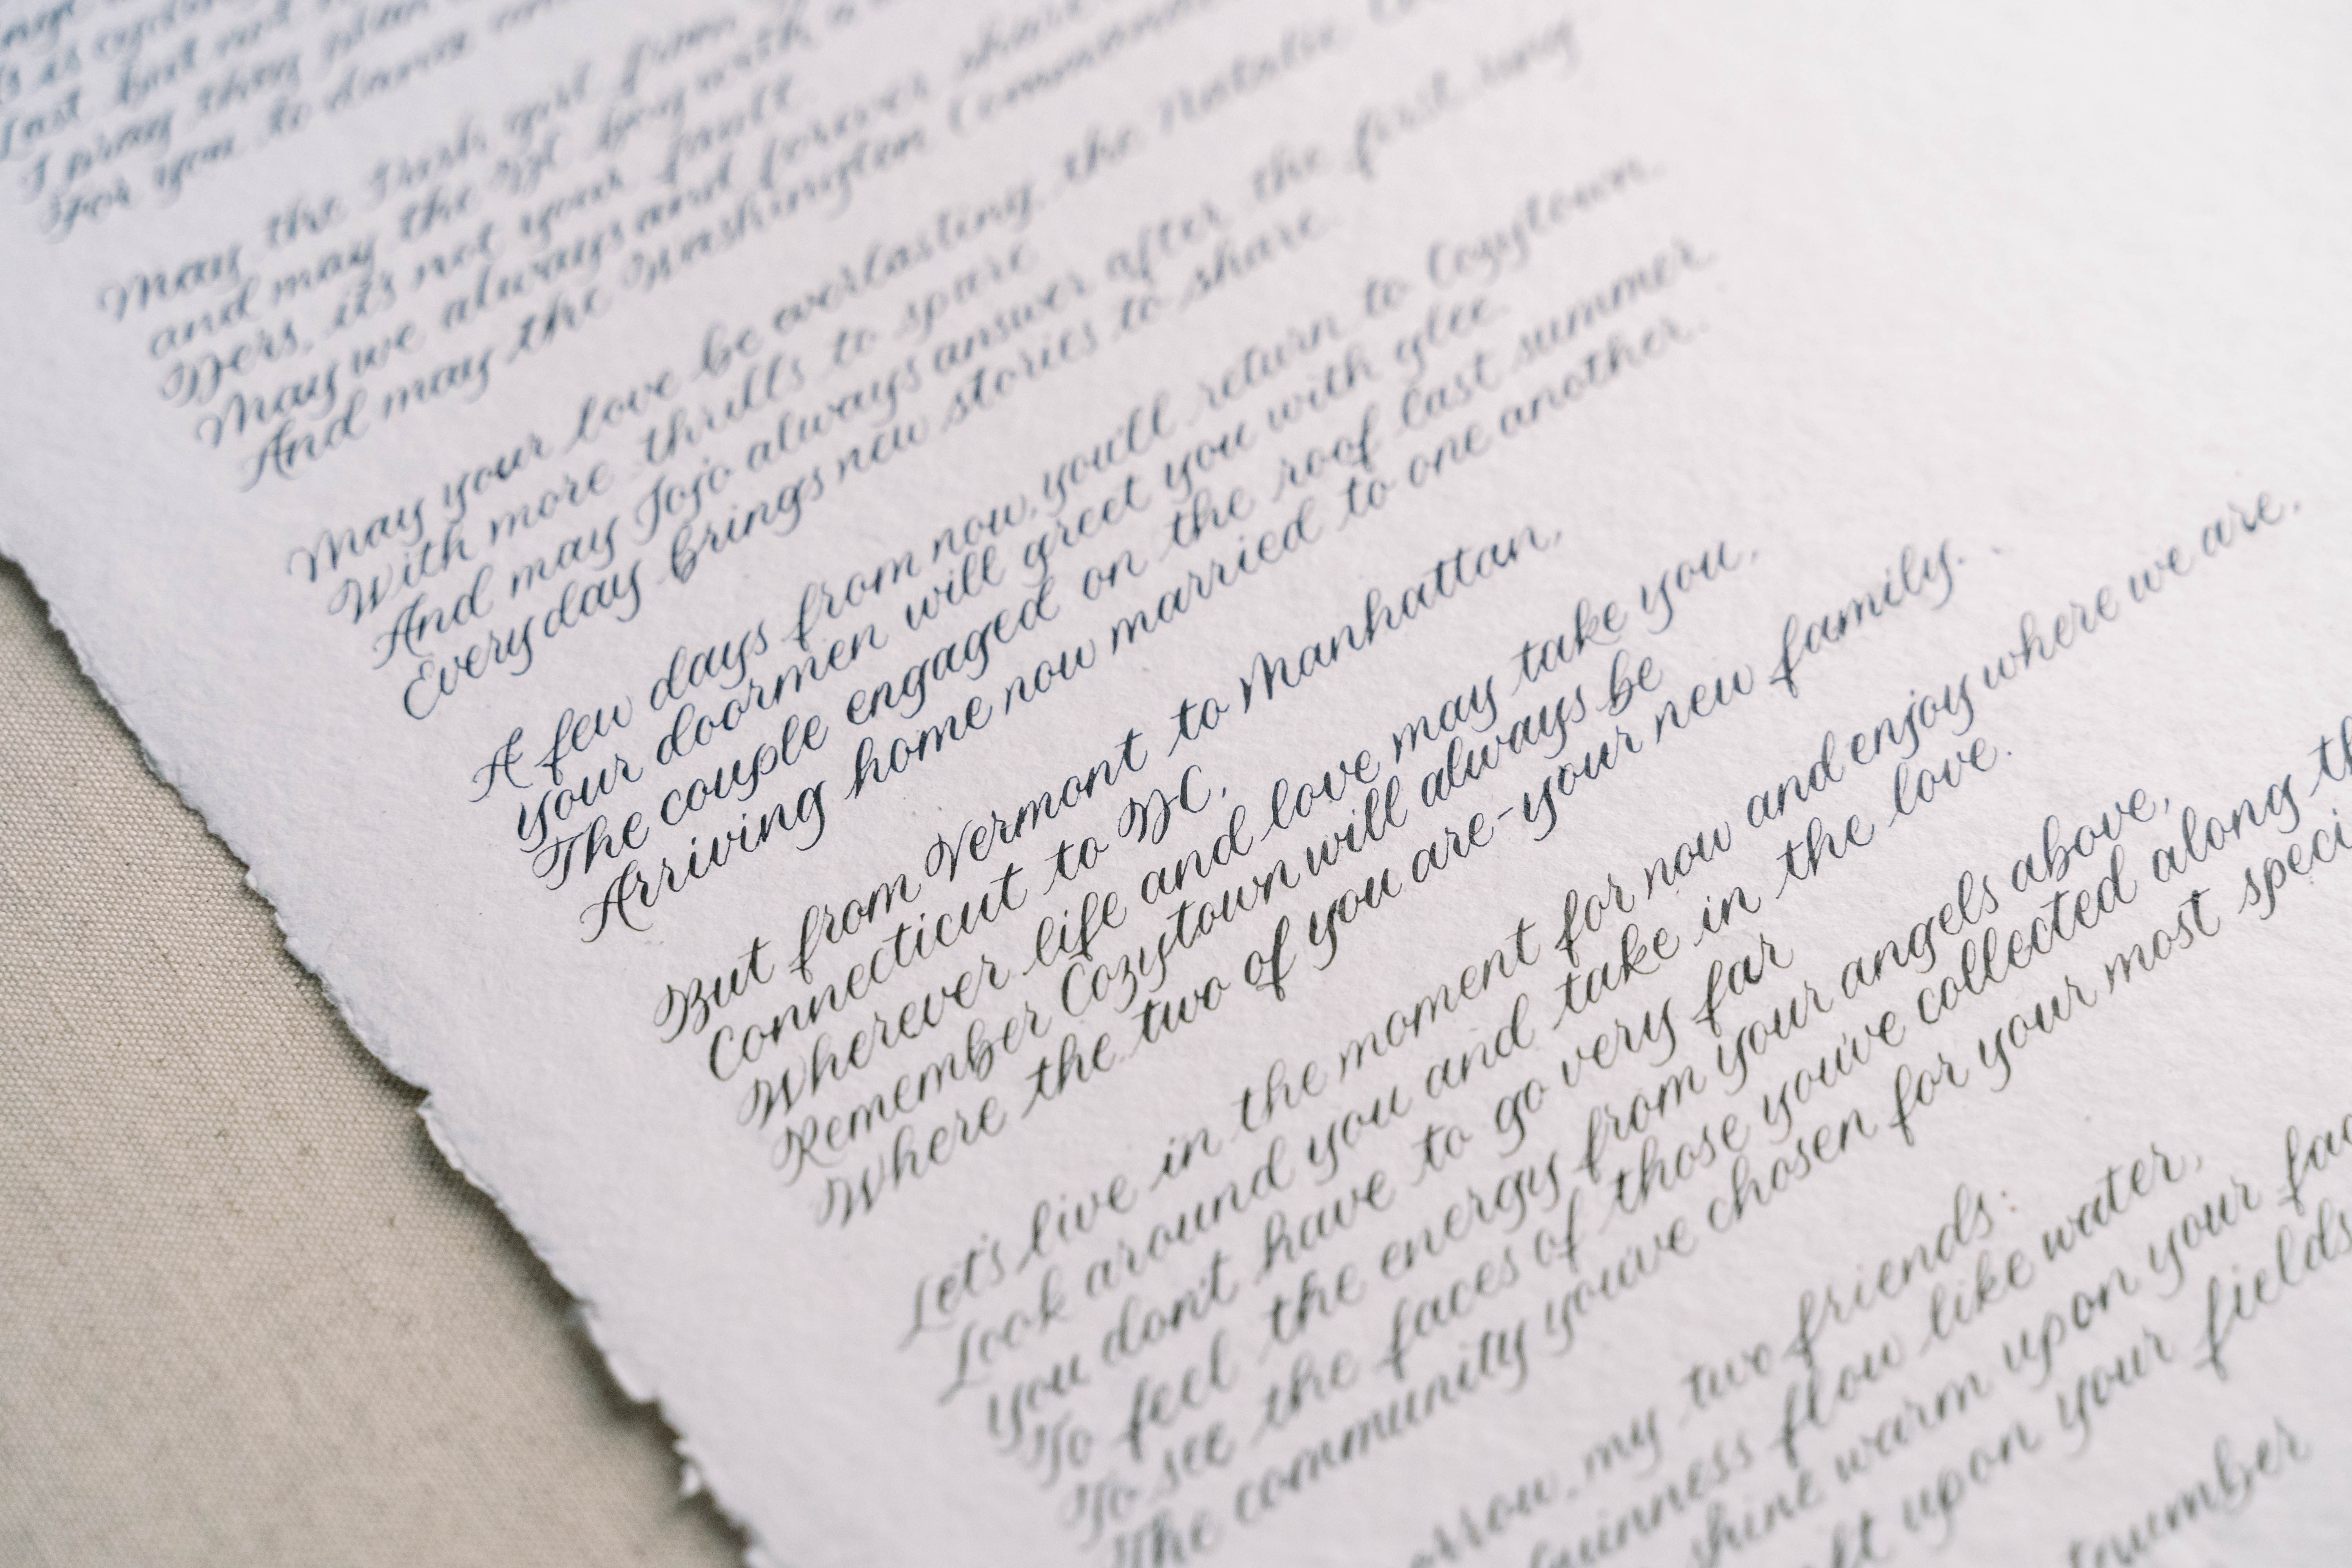 Last but not
I pray they plan
For you to dance
May the Irish girl from
and may the
Ders, it's not your fault.
May we always and forever share
And may the Washington Commanders
May your love be everlasting, the Natalie
With more thrills to spare
And may Jojo always answer after the first ring
Everyday brings new stories to share.
A few days from now, you'll return to Cozytown.
your doormen will greet you with glee.
The couple engaged on the roof last summer
Arriving home now married to one another.
But from Vermont to Manhattan,
Connecticut to DC,
Wherever life and love may take you,
Remember Cozytown will always be
Where the two of you are-your new family.
Let's live in the moment for now and enjoy where we are,
Look around you and take in the love.
you don't have to go very far
To feel the energy from your angels above,
To see the faces of those you've collected along
The community you've chosen for your most
my two friends:
Guinness flow like water,
shine warm upon your
upon your fields